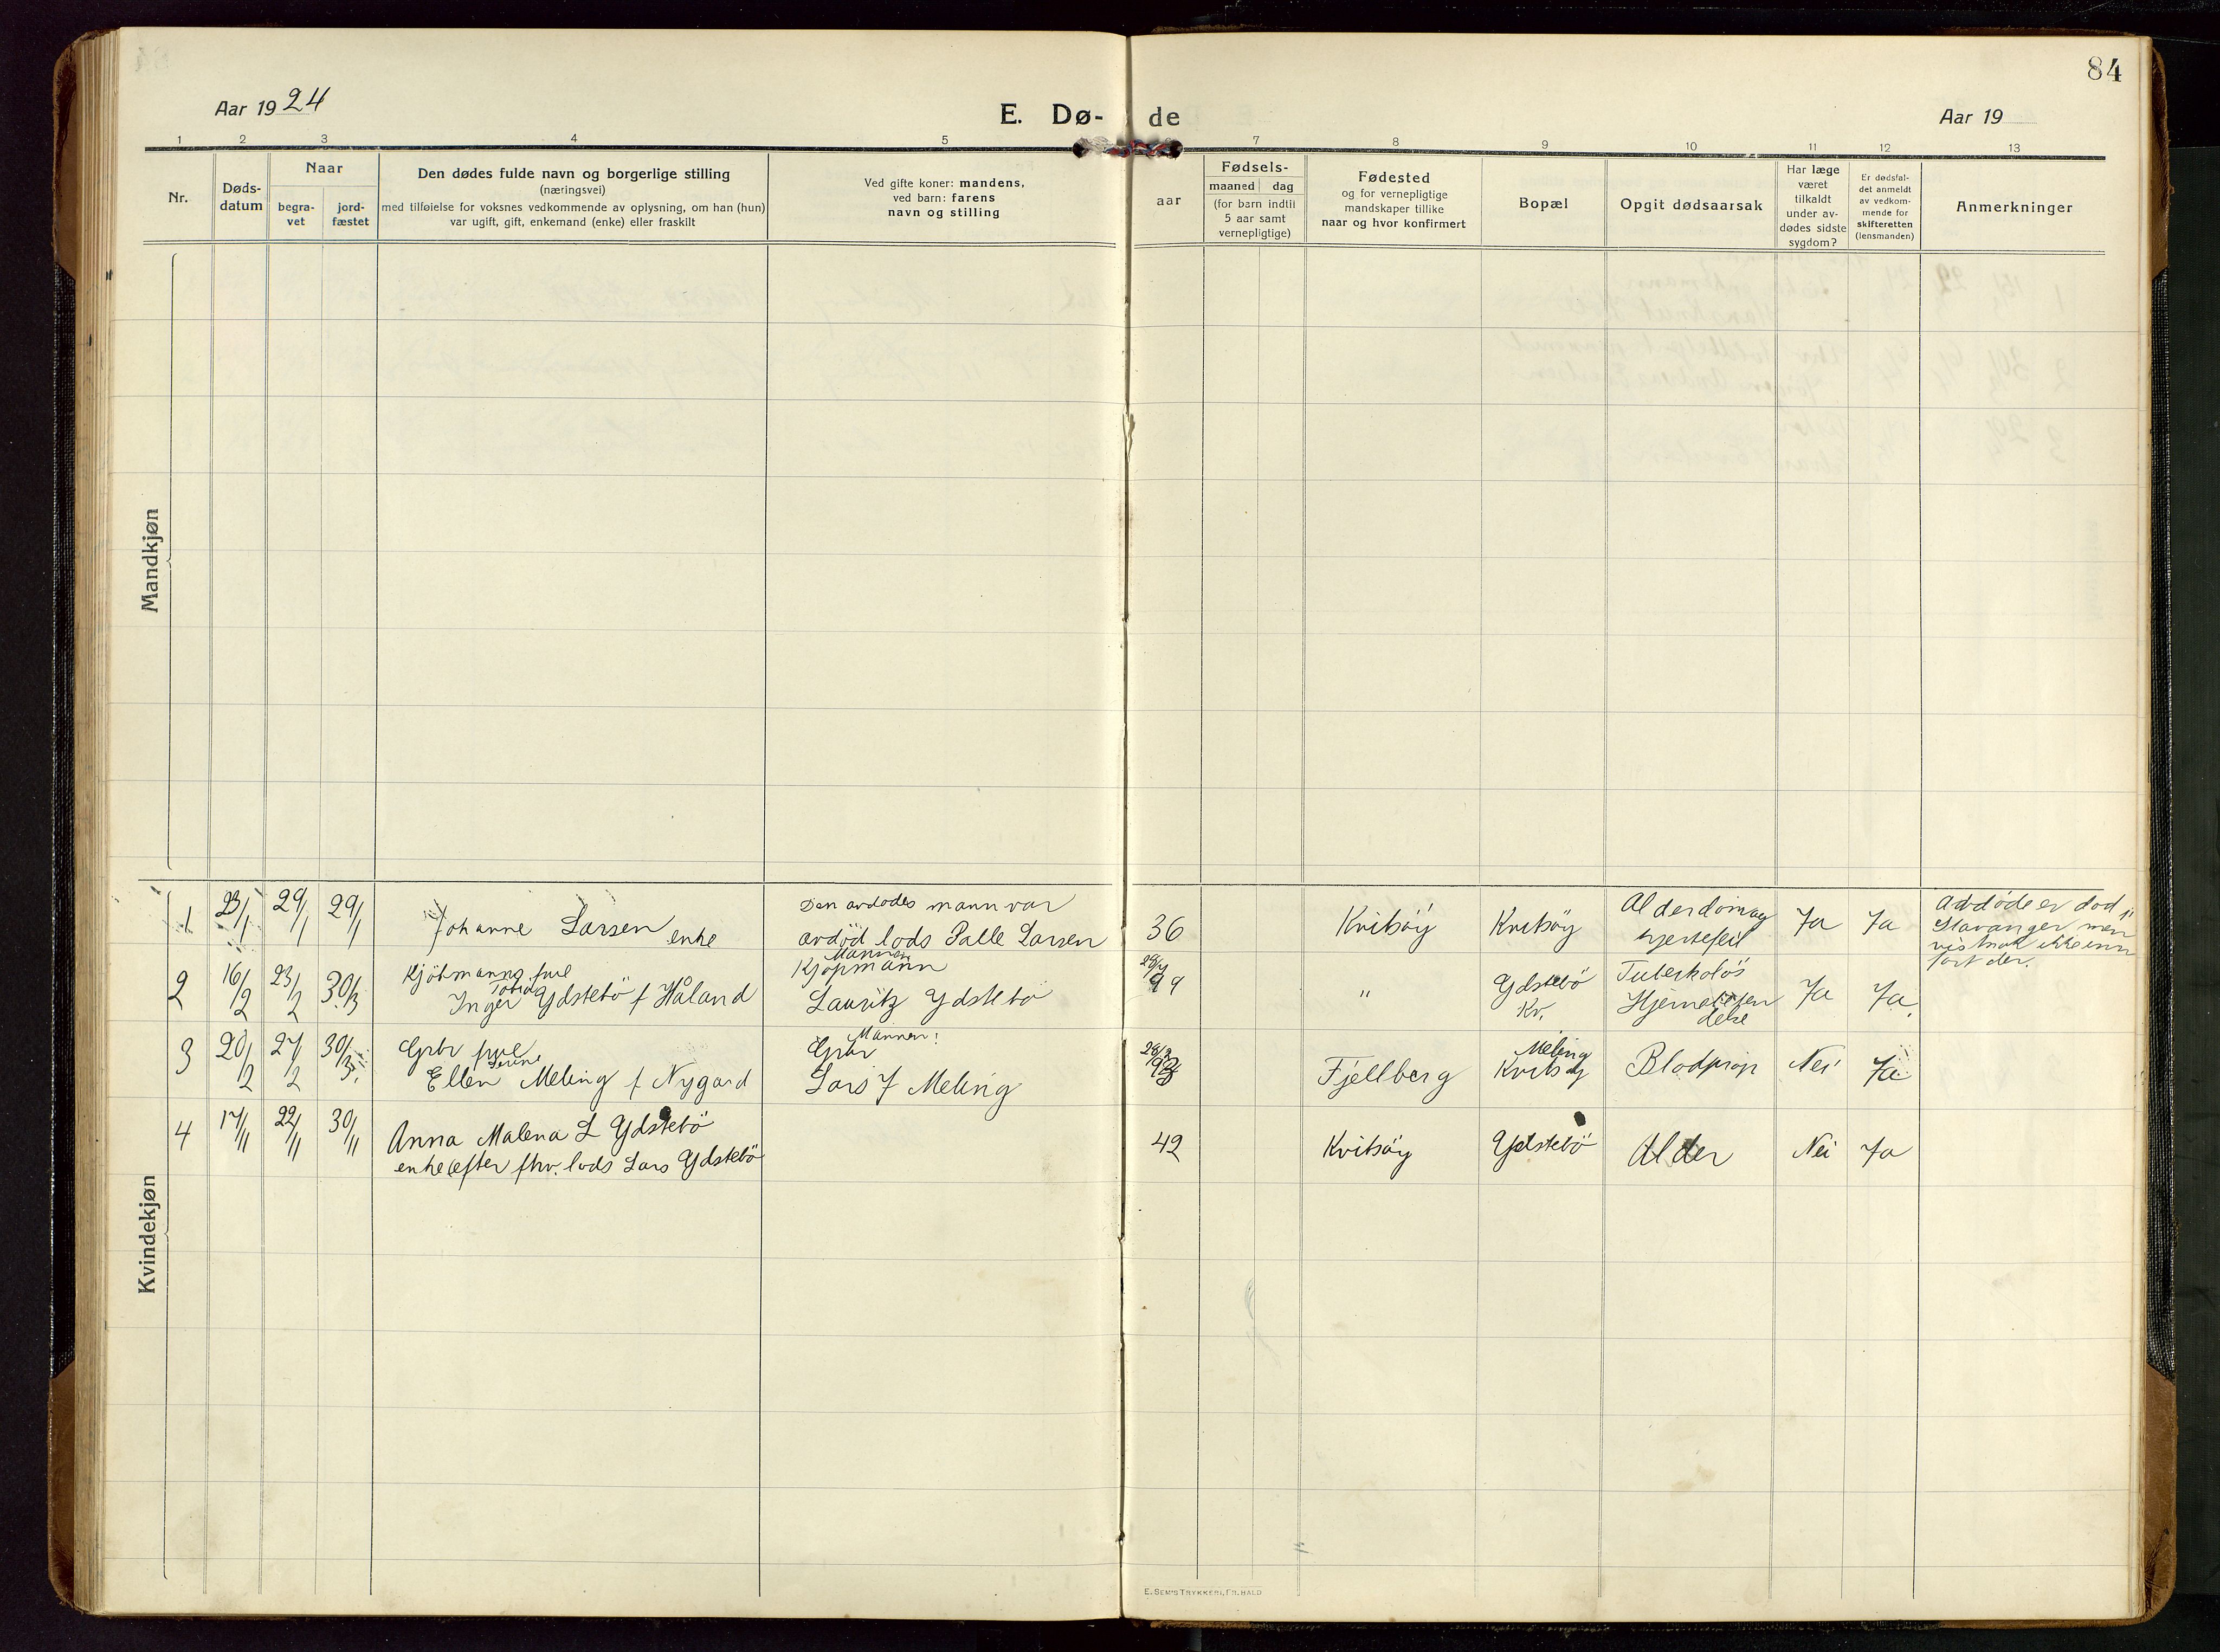 84
Aar 1924
E. Dø- de
Aar 19
1 2 3 4 5 7 8 9 10 11 12 13
Nr.
Døds-
datum
Naar
begra-
vet
jord-
fæstet
Den dødes fulde navn og borgerlige stilling
(næringsvei)
med tilføielse for voksnes vedkommende av oplysning, om han (hun)
var ugift, gift, enkemand (enke) eller fraskilt
Ved gifte koner: mandens,
ved barn: farens
navn og stilling
Fødsels-
aar
maaned dag
(for barn indtil
5 aar samt
vernepligtige)
Fødested
og for vernepligtige
mandskaper tillike
naar og hvor konfirmert
Bopæl
Opgit dødsaarsak
Har læge
været
tilkaldt
under av-
dødes sidste
sygdom?
Er dødsfal-
det anmeldt
av vedkom-
mende for
skifteretten
(lensmanden)
Anmerkninger
Mandkjøn
Kvindekjøn
1 23/1 29/1 29/1
Johanne Larsen
enke
Den avdødes mann var
avdöd lods Palle Larsen
36 Kvitsöy Kvitsöy
Alderdom og
hjertefeil
Ja Ja
Avdöde er död i
Stavanger men
ikke inn
fört der.
2 16/2 23/2 30/3
Kjöbmanns frue
Inger Ydstebö f Håland
Mannen
Kjöpmann
Lauritz Ydstebö
99 "
Ydstebö
Kv.
Tuberkolös
Hjernebetjen
delse
Ja Ja.
3 20/2 27/2 30/3.
Grbr frue
Ellen Meling f Nygard
Mannen:
Grbr
Lars J Meling
Fjellberg
Meling
Kvitsöy
Blodprop Nei Ja
4 17/11 22/11 30/11
Anna Malena L Ydstebö
enke efter fhv. lods Lars Ydstebö
42 Kvitsöy Ydstebö Alder Nei Ja
E. SEM'S TRYKKERI, FR.HALD